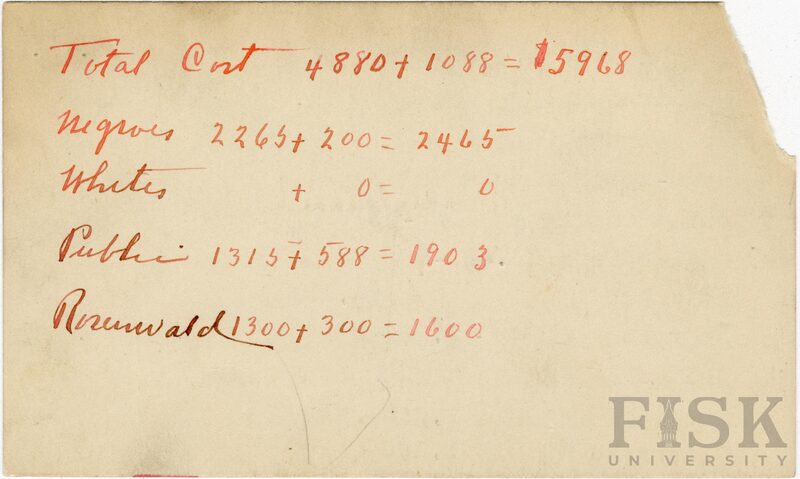 Total Cost 4880 + 1088 = $5968
Negroes 2265 + 200 = 2465
Whites + 0 = 0
Public 1315 + 588 = 1903
Rosenwald 1300 + 300 = 1600
FISK
UNIVERSITY